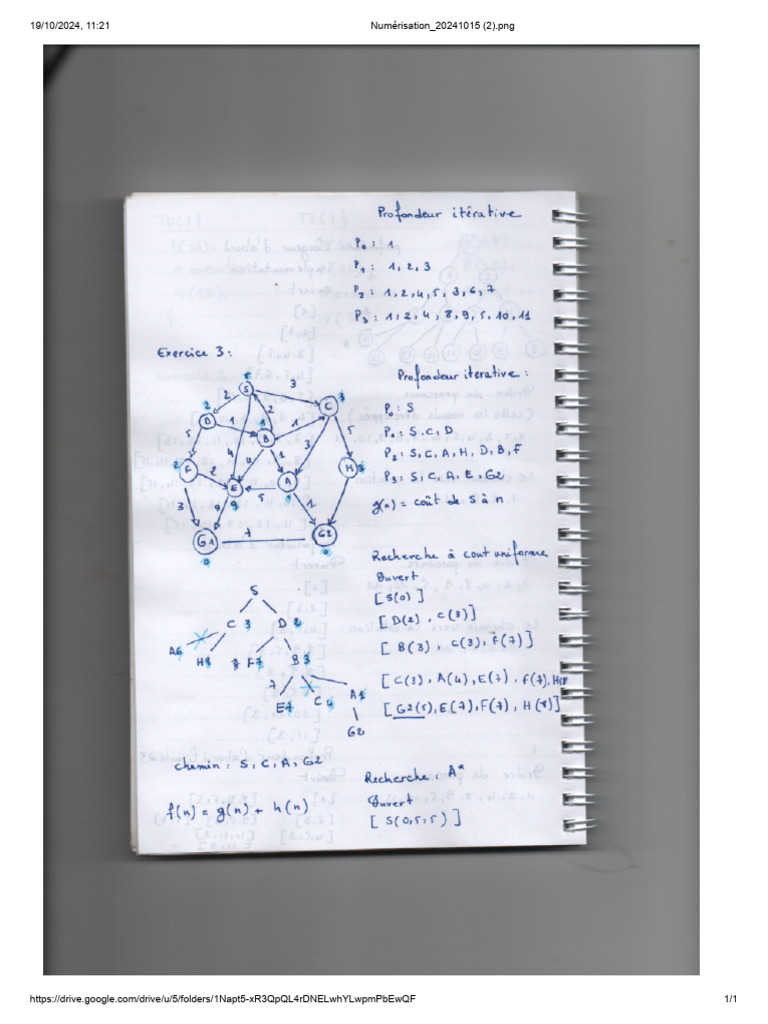 19/10/2024, 11:21
Numérisation_20241015 (2).png
Profondeur itérative
P₀ : 1
P₁ : 1, 2, 3
P₂ : 1, 2, 4, 5, 3, 6, 7
P₃ : 1, 2, 4, 8, 9, 5, 10, 11
Exercice 3 :
S
2
3
2
D
1
B
1
C
3
5
4
4
1
3
5
F
2
E
9
5
A
H
3
9
1
G1
7
G2
0
0
Profondeur iterative :
P₀ : S
P₁ : S, C, D
P₂ : S, C, A, H, D, B, F
P₃ : S, C, A, E, G2
g(n) = coût de S à n
Recherche à cout uniforme
Ouvert
[ S(0) ]
[ D(2) , C(3) ]
[ B(3) , C(3), F(7) ]
[ C(3), A(4), E(7), F(7), H(8)
[ G2(5), E(7), F(7), H(8) ]
S
C 3 D 2
A6 H8 F7 B3
7
E7 C4 A1
G2
chemin : S, C, A, G2
f(n) = g(n) + h(n)
Recherche : A*
Ouvert
[ S(0,5,5) ]
https://drive.google.com/drive/u/5/folders/1Napt5-xR3QpQL4rDNELwhYLwpmPbEwQF
1/1